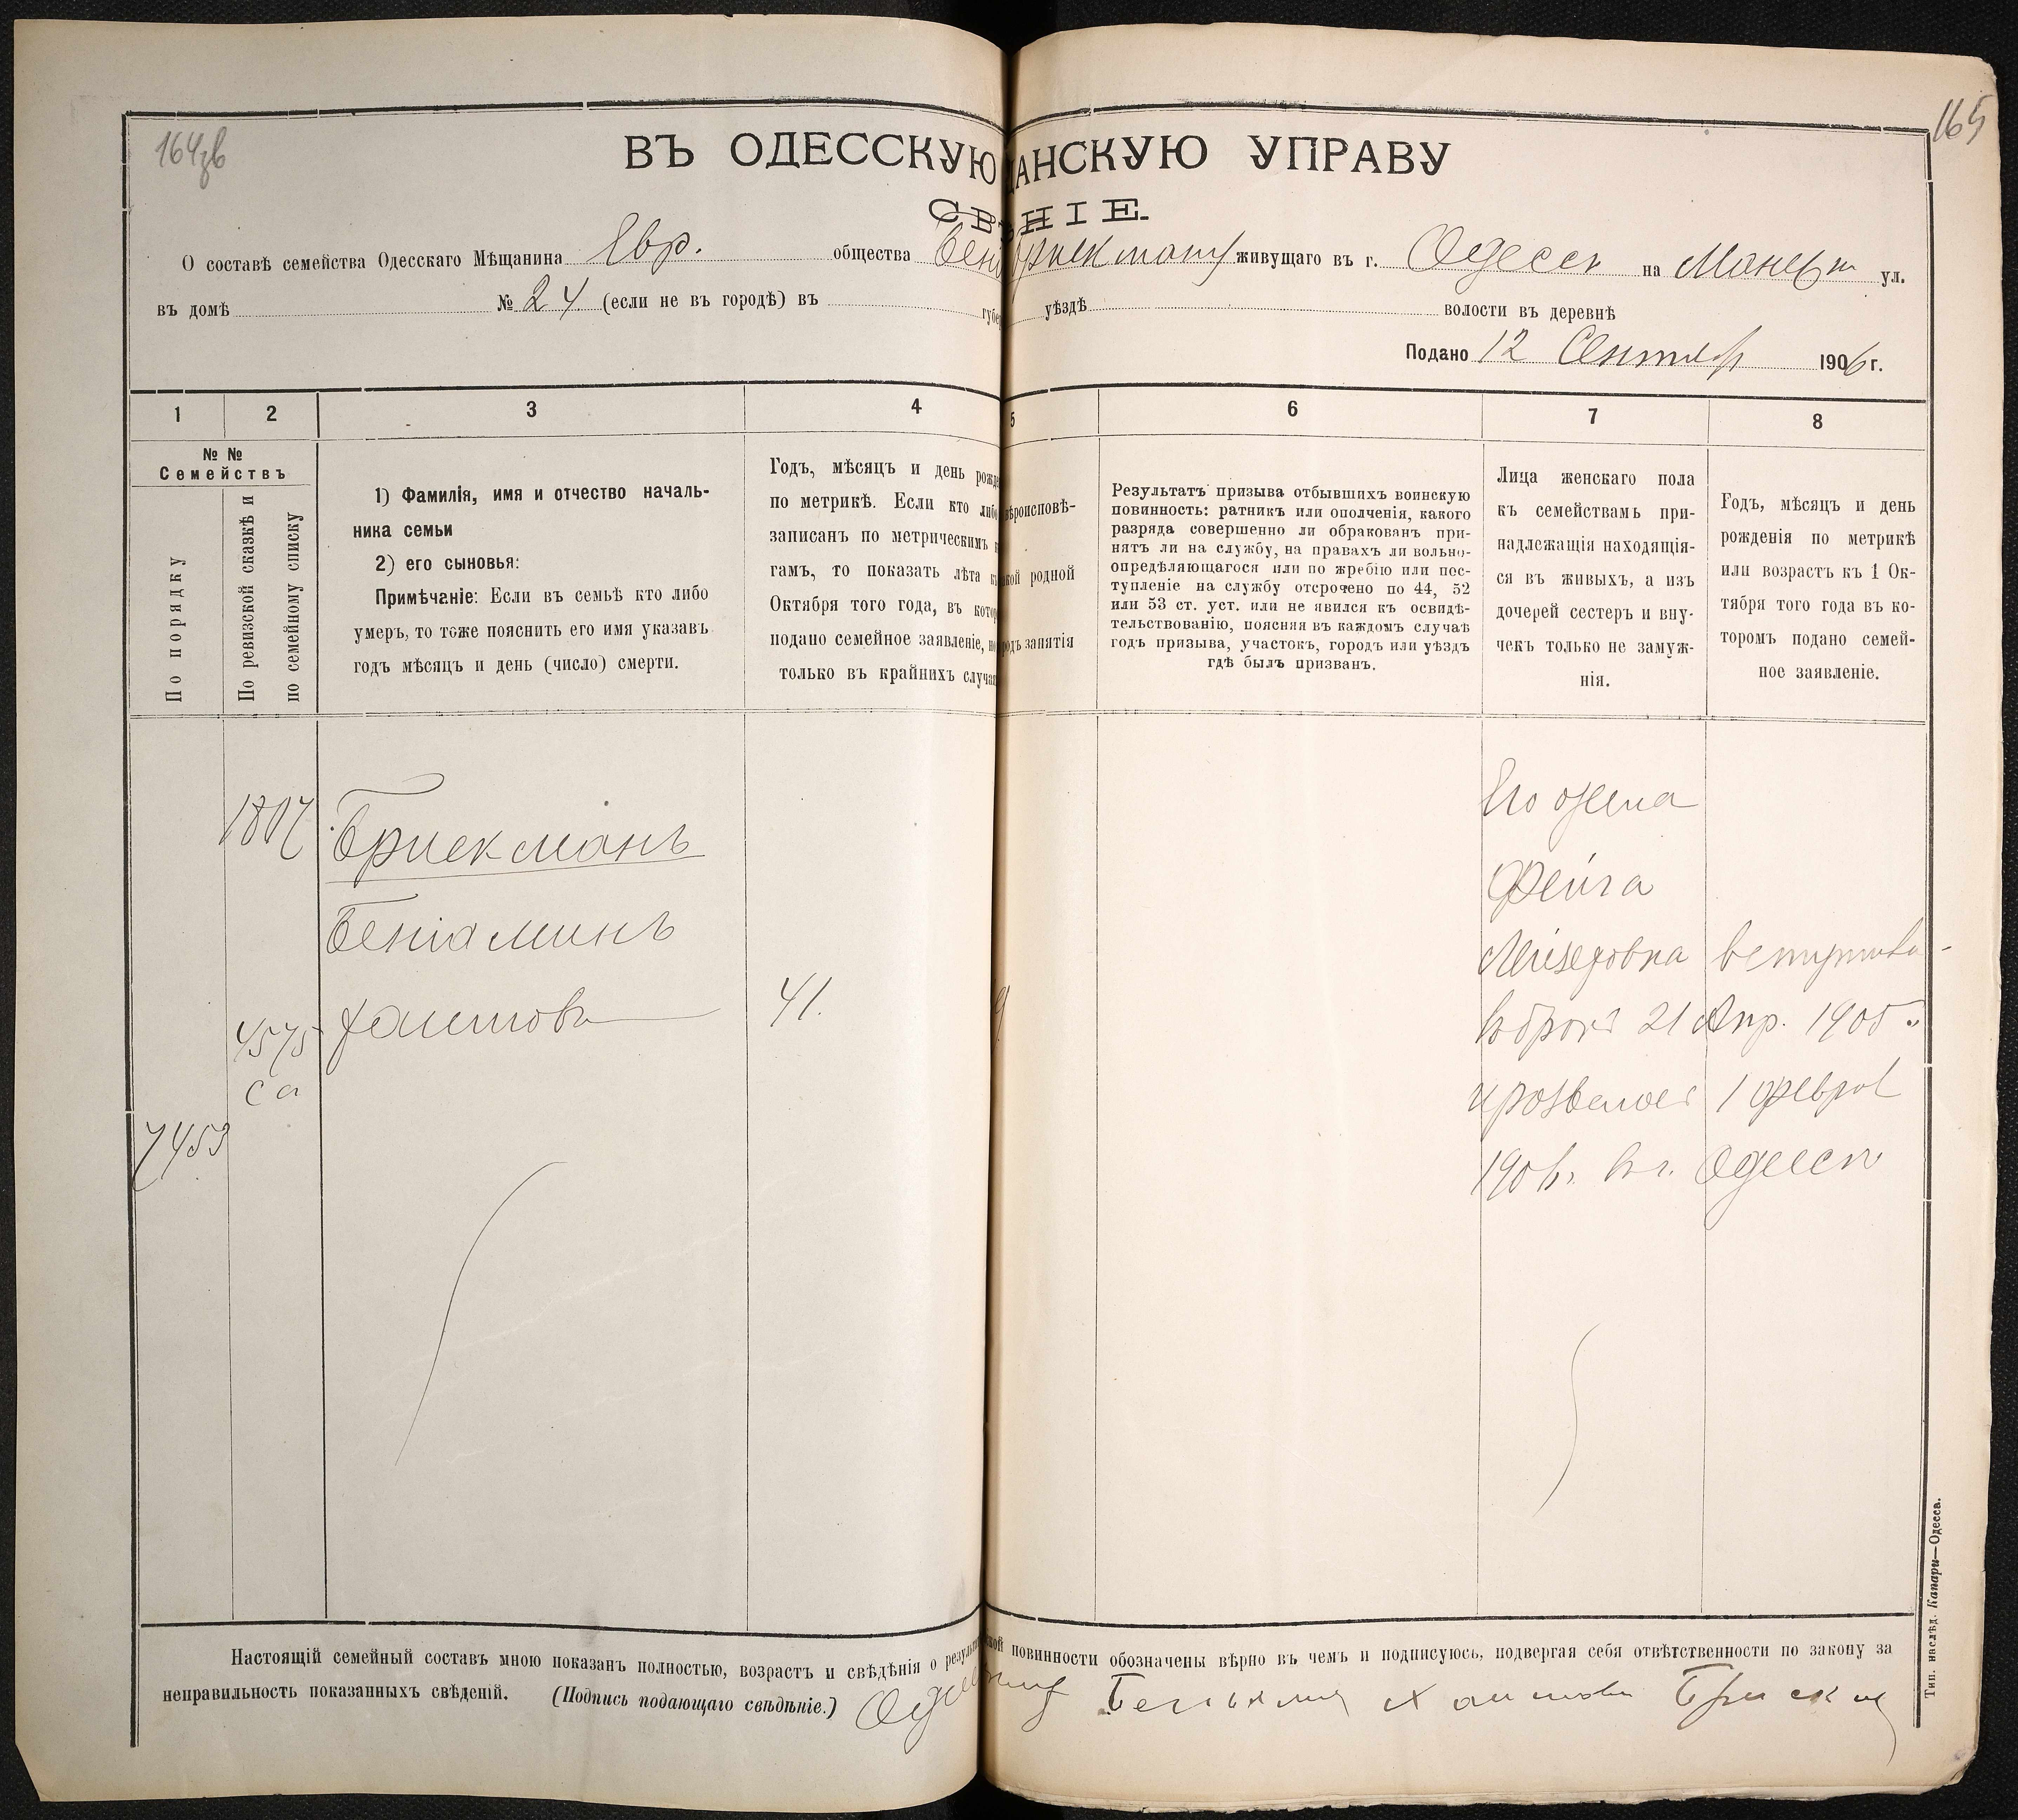 164зв
165
ВЪ ОДЕССКУЮ ЩАНСКУЮ УПРАВУ
СВ НІЕ.
О составѣ семейства Одесскаго Мѣщанина Евр. общества Бен Брискманъ живущаго въ г. Одессѣ на ул.
въ домѣ № 24 (если не въ городѣ) въ губер уѣздѣ волости въ деревнѣ
Подано 12 Сентября 1906 г.
1 2 3 4 5 6 7 8
№ №
Семействъ
По порядку
По ревизской сказкѣ и
по семейному списку
1) Фамилія, имя и отчество началь-
ника семьи
2) его сыновья:
Примѣчаніе: Если въ семьѣ кто либо
умеръ, то тоже пояснить его имя указавъ
годъ мѣсяцъ и день (число) смерти.
Годъ, мѣсяцъ и день рожде
по метрикѣ. Если кто либо
записанъ по метрическимъ к
гамъ, то показать лѣта къ
Октября того года, въ котор
подано семейное заявленіе, но
только въ крайнихъ случая
вѣроисповѣ-
акой родной
родъ занятія
Результатъ призыва отбывшихъ воинскую
повинность: ратникъ или ополченія, какого
разряда совершенно ли обракованъ при-
нятъ ли на службу, на правахъ ли вольно-
опредѣляющагося или по жребію или пос-
тупленіе на службу отсрочено по 44, 52
или 53 ст. уст. или не явился къ освидѣ-
тельствованію, поясняя въ каждомъ случаѣ
годъ призыва, участокъ, городъ или уѣздъ
гдѣ былъ призванъ.
Лица женскаго пола
къ семействамъ при-
надлежащія находящія-
ся въ живыхъ, а изъ
дочерей сестеръ и вну-
чекъ только не замуж-
нія.
Годъ, мѣсяцъ и день
рожденія по метрикѣ
или возрастъ къ 1 Ок-
тября того года въ ко-
торомъ подано семей-
ное заявленіе.
1807
Брискманъ
Беніаминъ
Хаимовъ
41.
4575
са
7453
Его жена
Фейга
вступила
въ бракъ 21 Апр. 1905 г.
и развелась 1 Феврал
1906 г. въ г. Одессѣ
Настоящій семейный составъ мною показанъ полностью, возрастъ и свѣдѣнія о результа ской повинности обозначены вѣрно въ чемъ и подписуюсь, подвергая себя отвѣтственности по закону за
неправильность показанныхъ свѣденій. (Подпись подающаго свѣдѣніе.) Хаимовъ
Тип. наслѣд. Капари—Одесса.